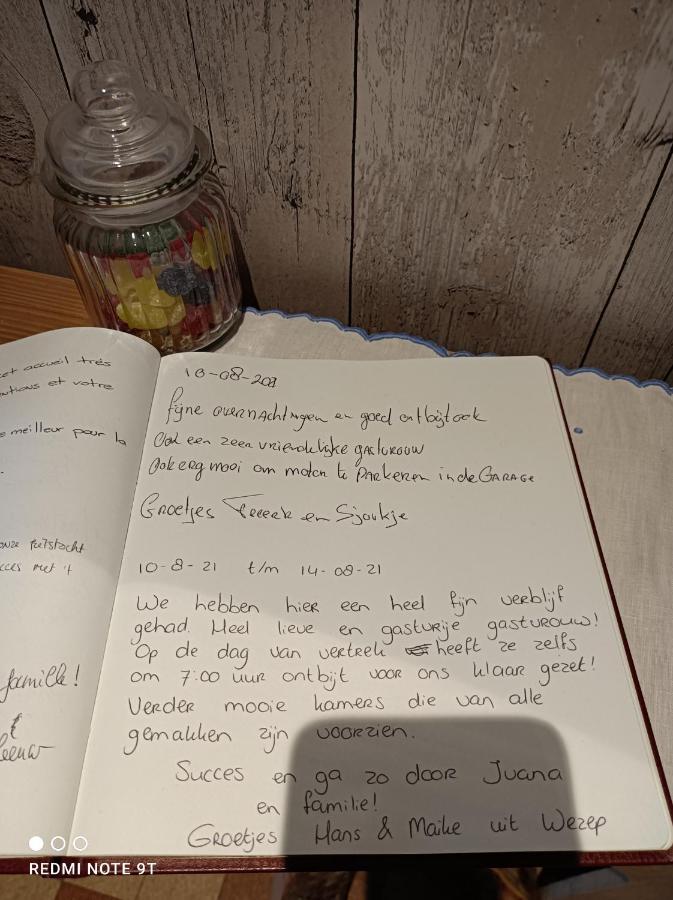 et accueil très
utions et votre
e meilleur pour la
onze fietstocht
cces met 't
famille!
10-08-2021
fijne overnachtingen en goed ontbijt ook
Ook een zeer vriendelijke gastvrouw
Ook erg mooi om motor te Parkeren in de GARAGE
Groetjes en Sjoukje
10-8-21 t/m 14-08-21
We hebben hier een heel fijn verblijf
gehad. Heel lieve en gastvrije gastvrouw!
Op de dag van vertrek heeft ze zelfs
om 7:00 uur ontbijt voor ons klaar gezet!
Verder mooie kamers die van alle
gemakken zijn voorzien.
Succes en ga zo door Juana
en familie!
Groetjes Hans & Maike uit Wezep
REDMI NOTE 9T